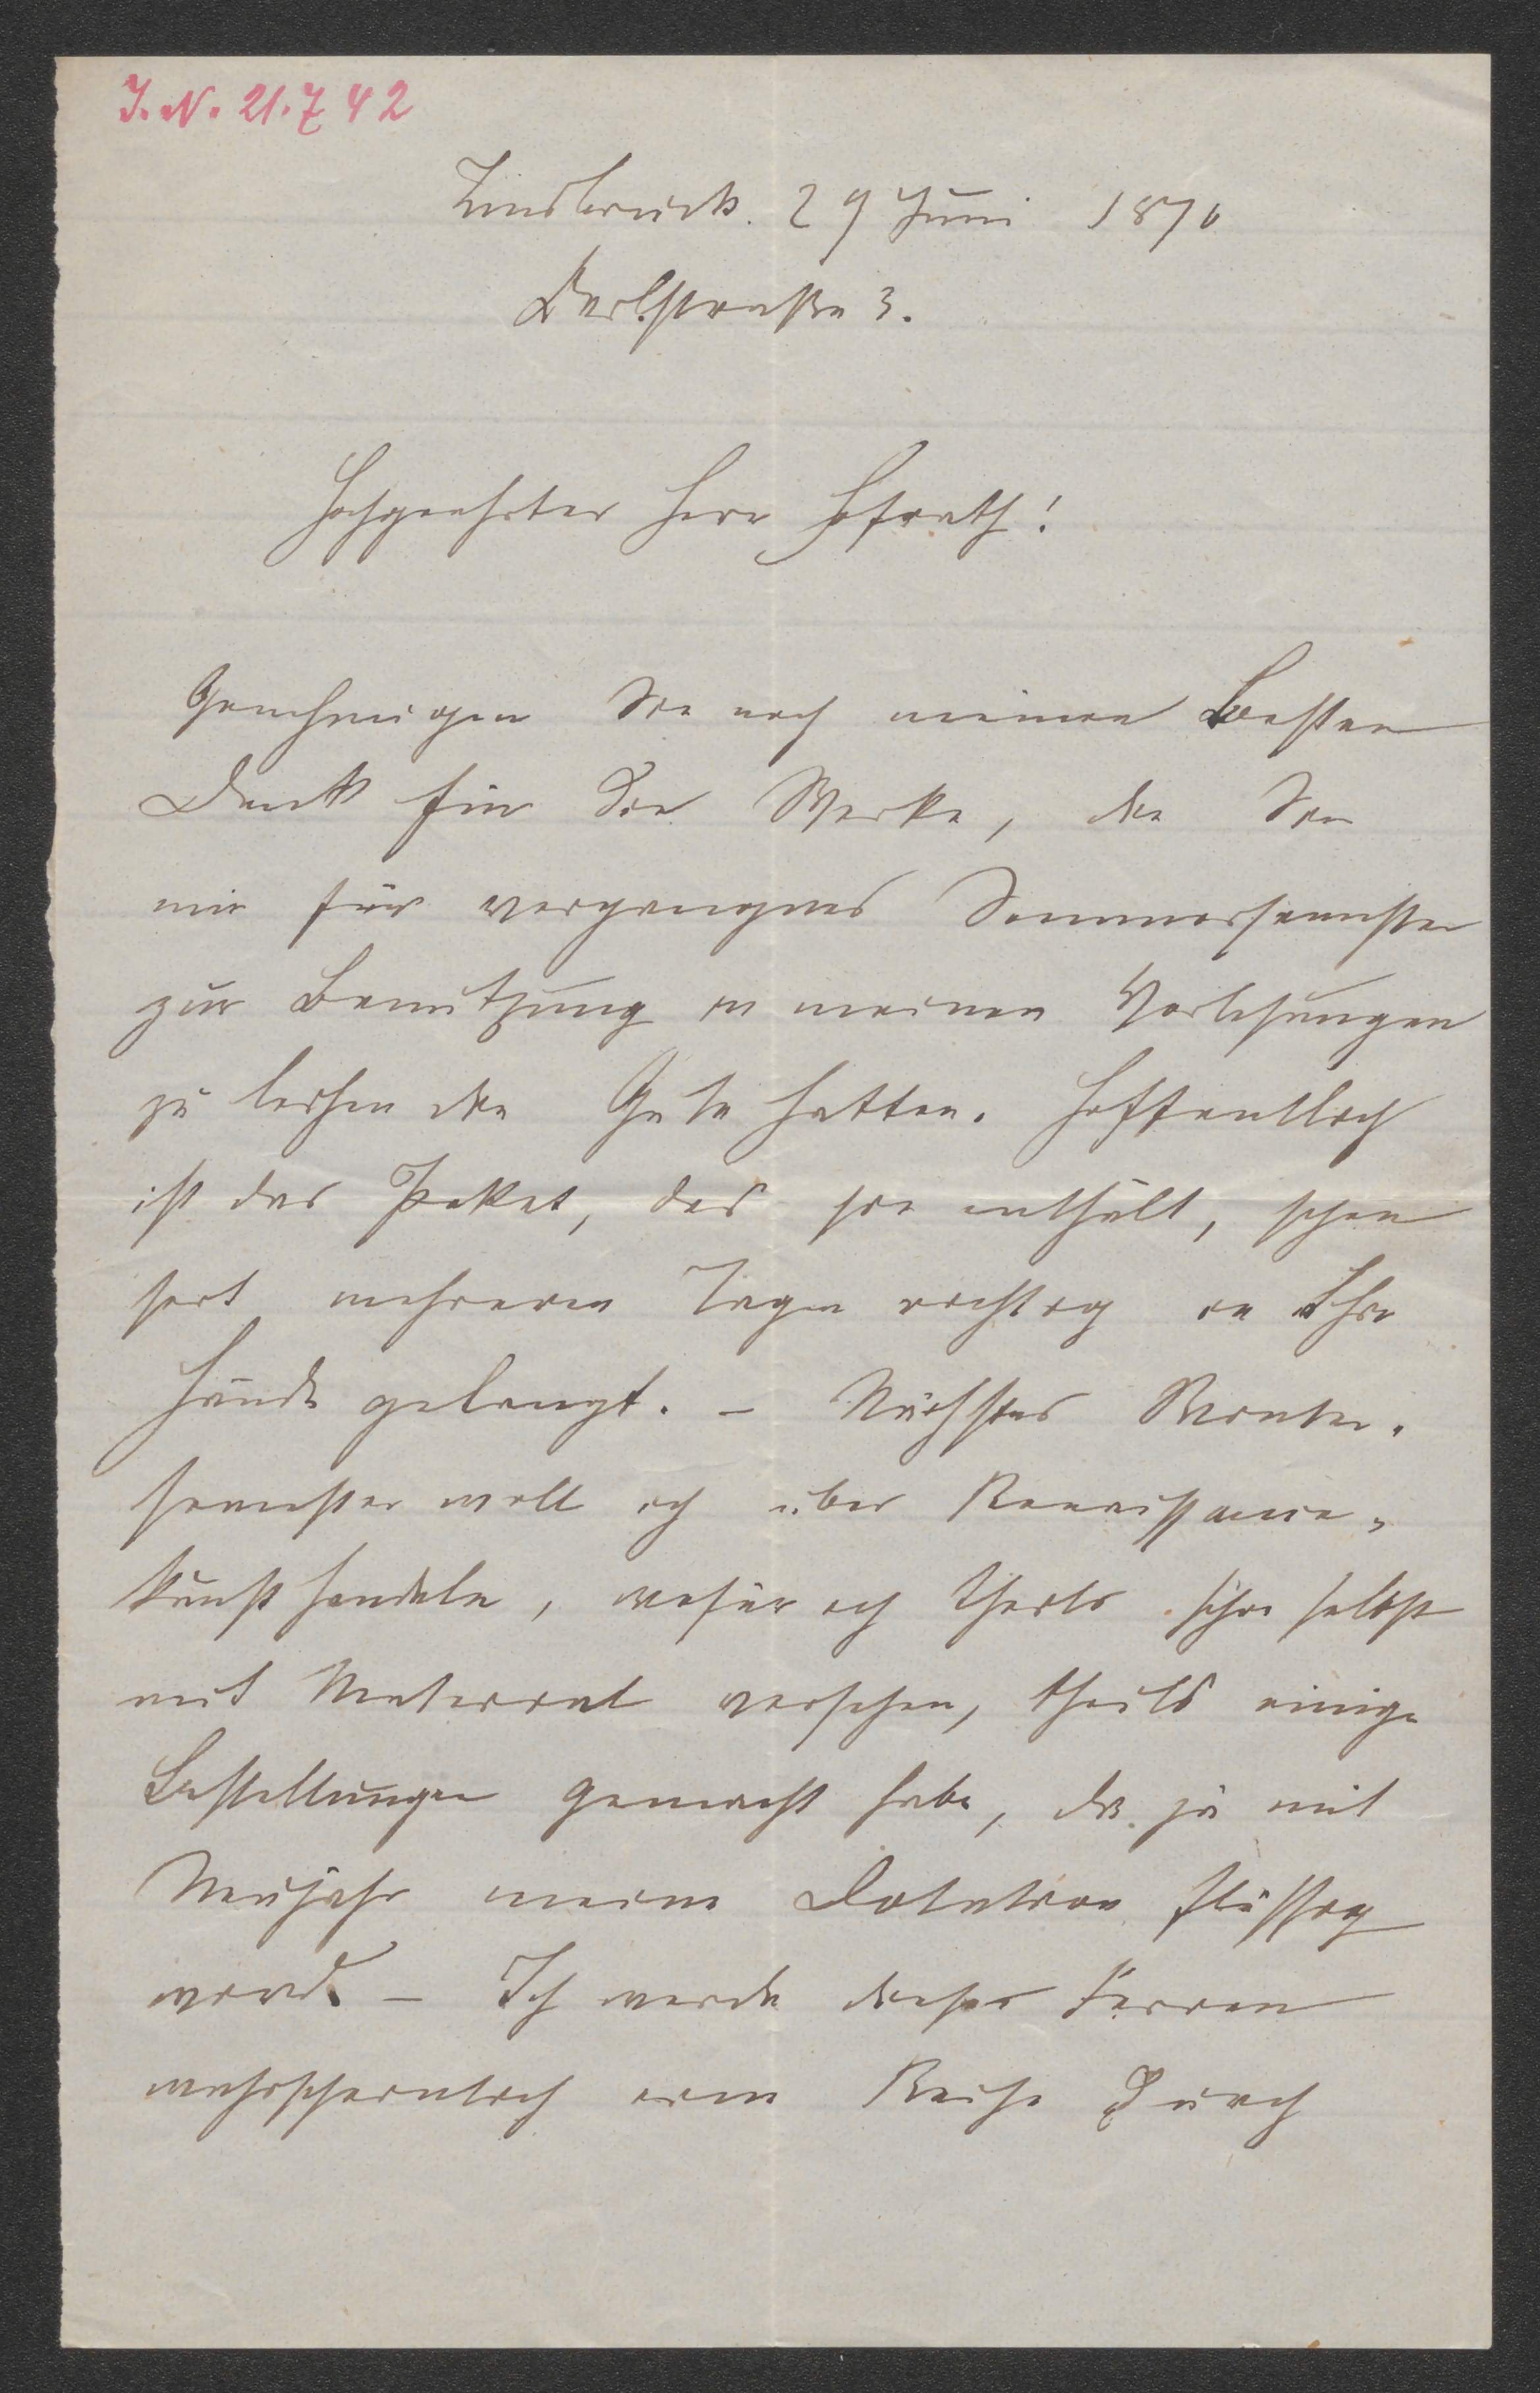 I. N. 21.742
Innsbruck. 29 Juni 1870
Karlstraße 3.
Hochgeehrter Herr Hofrath!
Genehmigen Sie noch meinen besten
Dank für die Werke, die Sie
mir für vergangnes Sommersemester
zur Benutzung in meinen Vorlesungen
zu leihen die Güte hatten. Hoffentlich
ist das Paket, das sie enthält, schon
seit mehreren Tagen richtig in Ihre
Hände gelangt. – Nächstes Winter-
semester will ich über Renaissance-
kunst handeln, wofür ich theils schon selbst
mit Material versehen, theils einige
Bestellungen gemacht habe, da ja mit
Neujahr meine Dotation flüssig
wird. – Ich werde diese Ferien
wahrscheinlich eine Reise durch